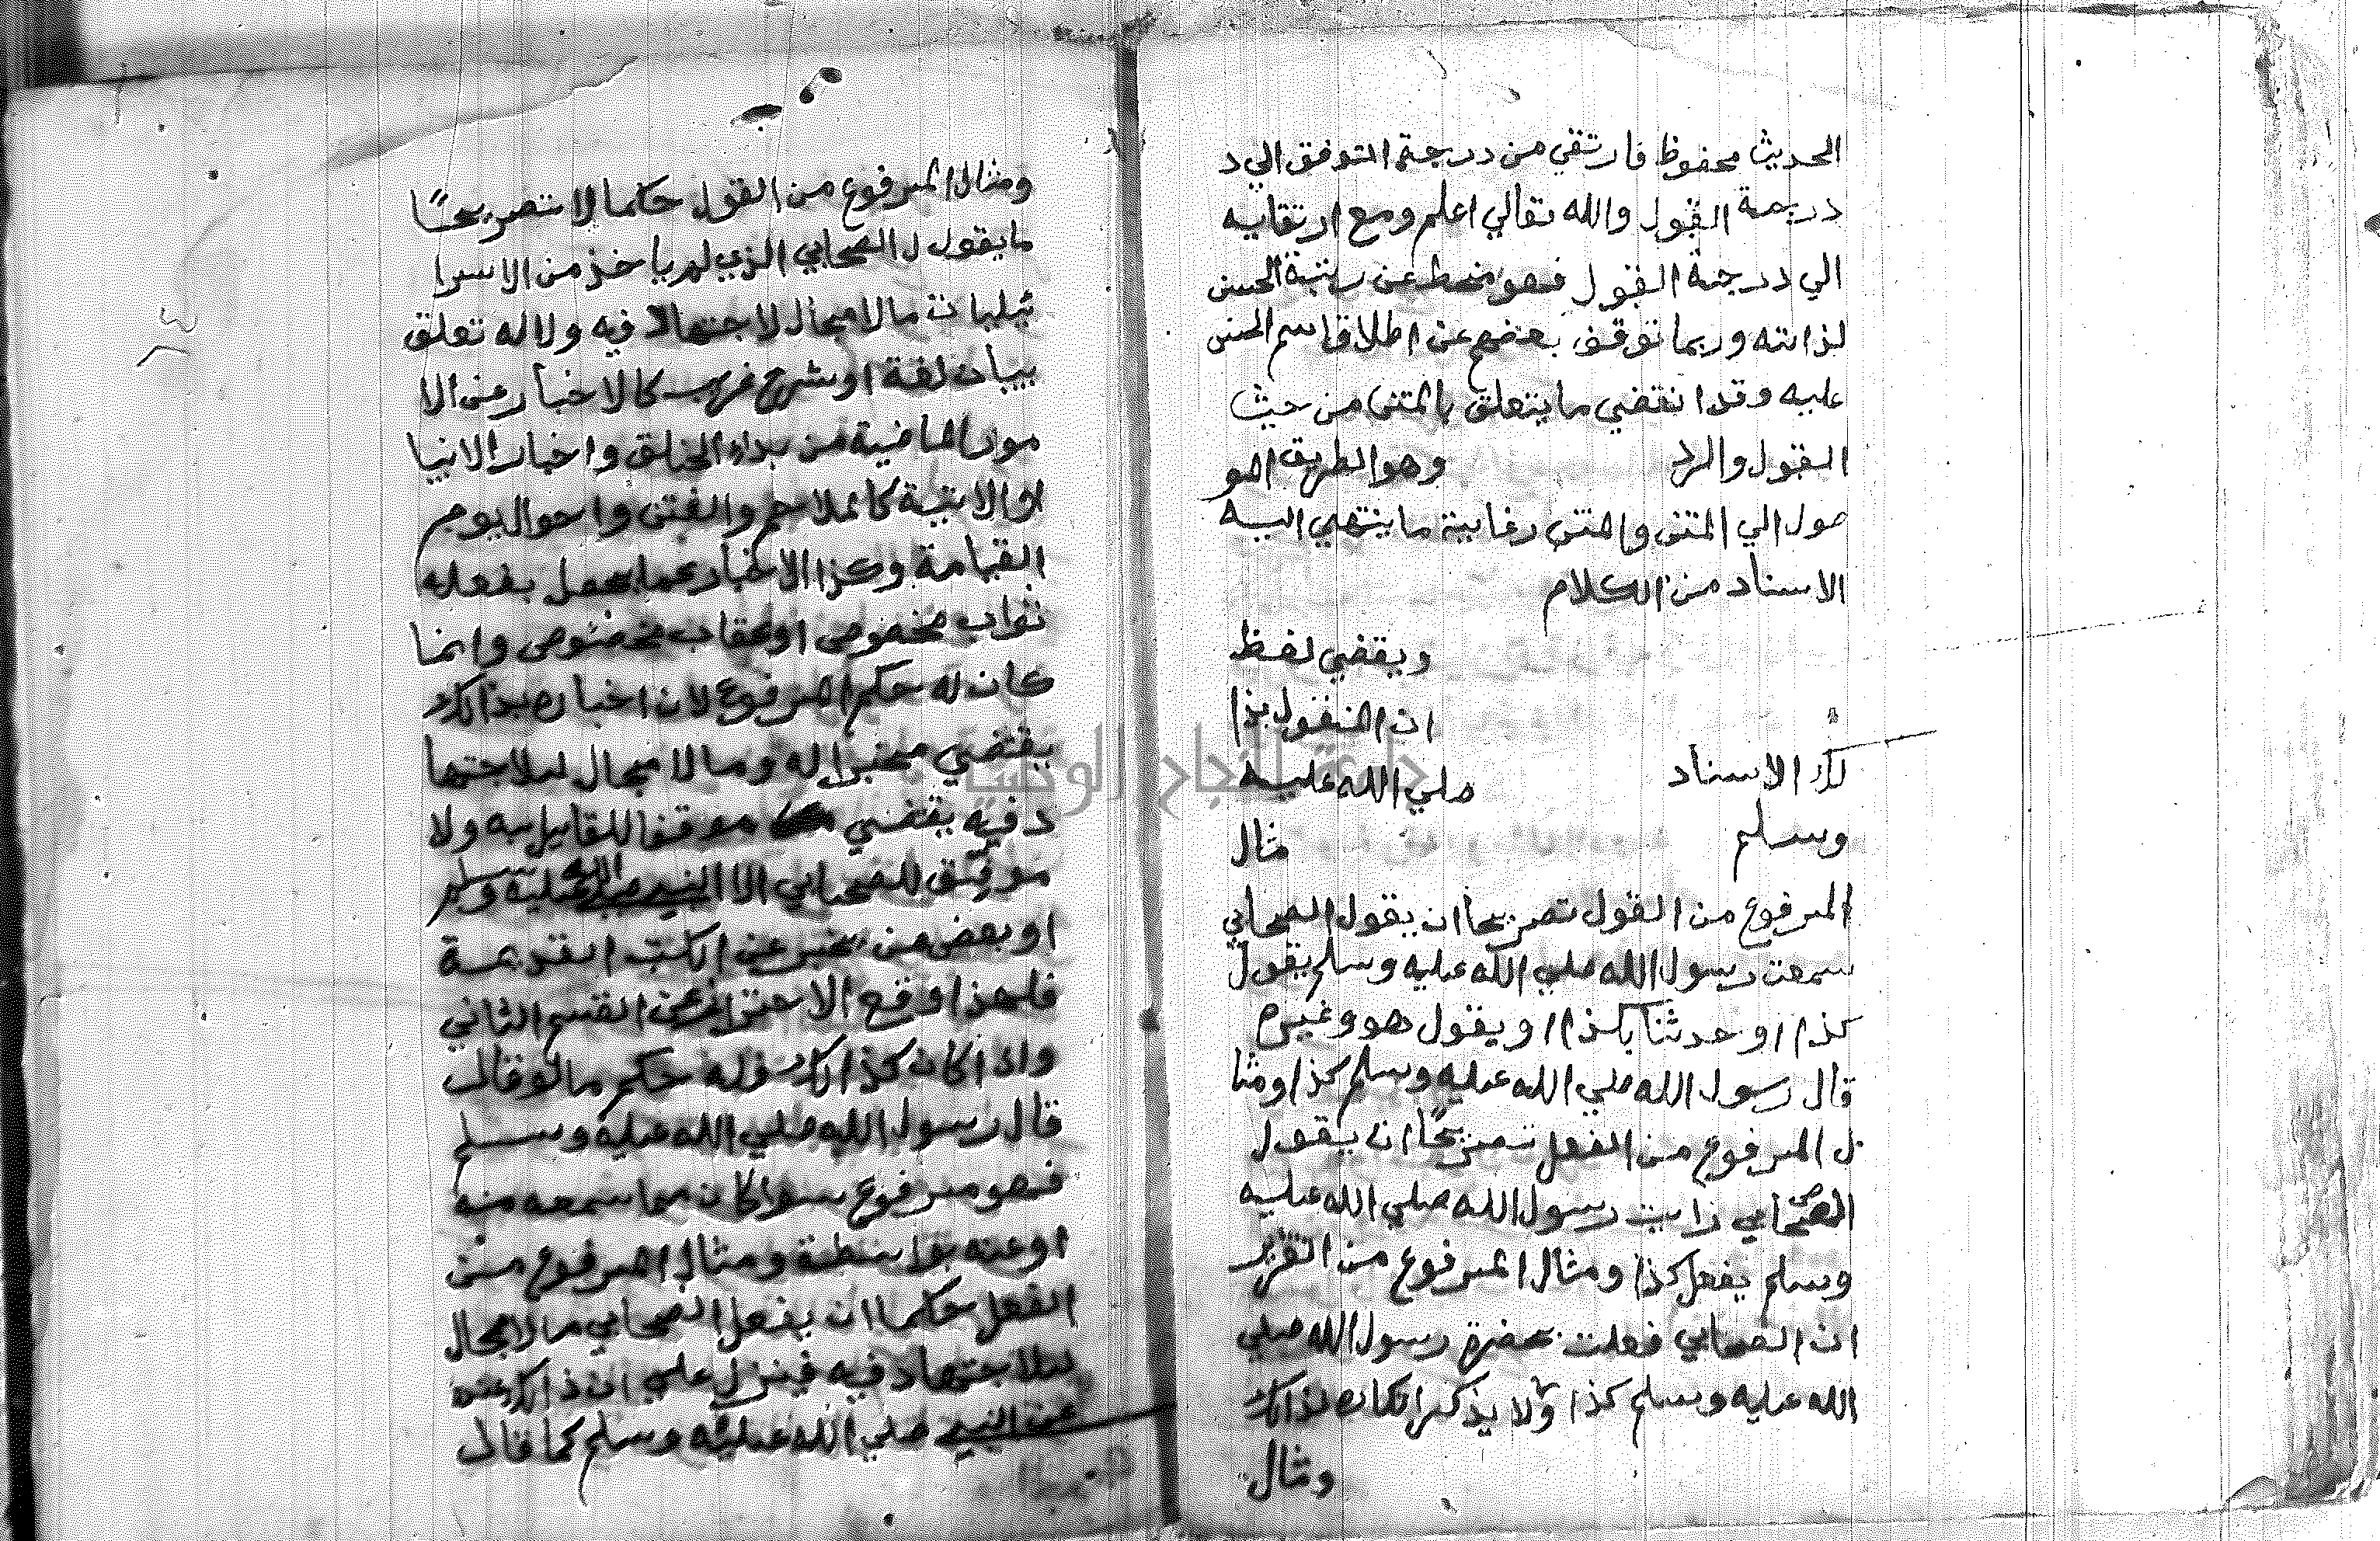 الحديث محفوظ فارتقي من درجة التوقف الي د
درجة القبول والله تعالي اعلم ومع ارتقايه
الي درجة القبول فهو منحط عن رتبة الحسن
لذاته وربما توقف بعضهم عن اطلاق اسم الحسن
عليه وقد انقضي ما يتعلق بالمتن من حيث
القبول والرد وهو الطريق المو
صول الي المتن والمتن وغاية ما ينتهي اليه
الاسناد من الكلام
ويقتضي لفظ
ان المنقول بذا
لك الاسناد صلي الله عليه
وسلم مثال
المرفوع من القول تصريحا ان يقول الصحابي
سمعت رسول الله صلي الله عليه وسلم يقول
كذا او حدثنا بكذا او يقول هو وغيره
قال رسول الله صلي الله عليه وسلم كذا ومثا
ل المرفوع من الفعل تصريحًا ان يقول
الصحابي رايت رسول الله صلي الله عليه
وسلم يفعل كذا ومثال المرفوع من التقرير
ان الصحابي فعلت بحضرة رسول الله صلي
الله عليه وسلم كذا ولا يذكر انكاره لذالك
ومثال
ومثال المرفوع من القول حكما لا تصريحًا
ما يقول الصحابي الذي لم ياخذ من الاسرا
ئيليات ما لا مجال لاجتهاد فيه ولا له تعلق
ببيان لغة او شرح غريب كالاخبار عن الا
مور الماضية من بداء الخلق واخبار الانبيا
او الاتية كالملاحم والفتن واحوال يوم
القيامة وكذا الاخبار عما يحصل بفعله
ثواب مخصوص او عقاب مخصوص وانما
كان له حكم المرفوع لان اخباره بذالك
يقتضي مخبرا له وما لا مجال للاجتها
د فيه يقتضي موقفا للقايل به ولا
موقف للصحابي الا النبي صلي الله عليه وسلم
او بعض من يخبر عن الكتب القديمة
فلهذا وقع الاحتراز عن القسم الثاني
واذا كان كذالك فله حكم ما لو قال
قال رسول الله صلي الله عليه وسلم
فهو مرفوع سوا كان مما سمعه منه
او عنه بواسطة ومثال المرفوع من
الفعل حكما ان يفعل الصحابي ما لا مجال
للاجتهاد فيه فينزل علي ان ذالك عنده
عن النبي صلي الله عليه وسلم كما قال
جامعة النجاح الوطنية